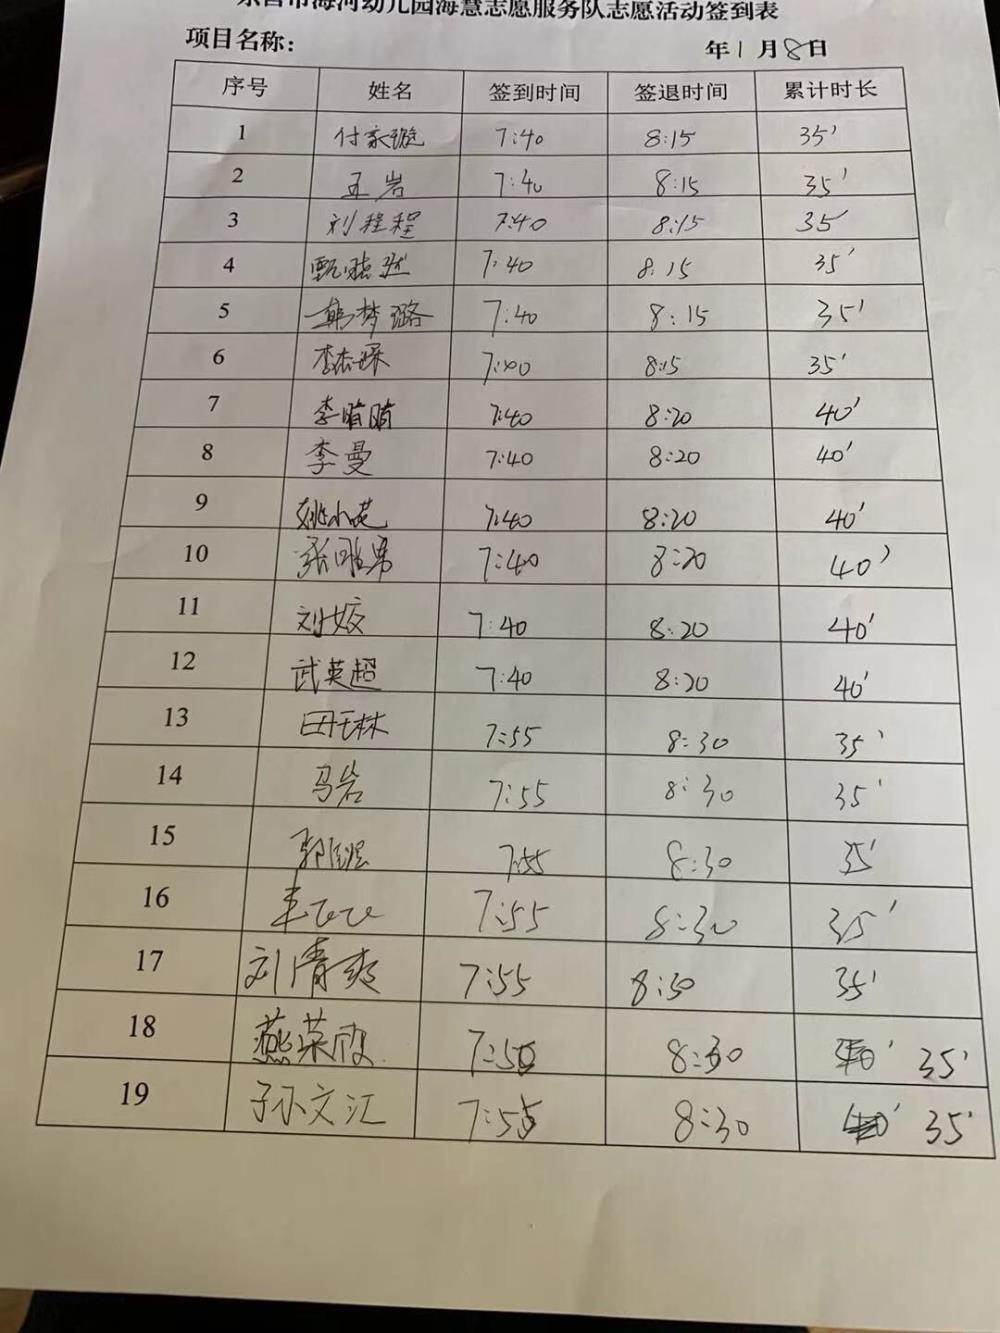 东营市海河幼儿园海慧志愿服务队志愿活动签到表
项目名称： 年1月8日
序号 姓名 签到时间 签退时间 累计时长
1 付家璇 7:40 8:15 35'
2 王岩 7:40 8:15 35'
3 刘程程 7:40 8:15 35
4 甄 7:40 8:15 35'
5 韩梦璐 7:40 8:15 35'
6 李杰琛 7:40 8:15 35'
7 李晴晴 7:40 8:20 40'
8 李曼 7:40 8:20 40'
9 姚小花 7:40 8:20 40'
10 张 男 7:40 8:20 40'
11 刘姣 7:40 8:20 40'
12 武英超 7:40 8:20 40'
13 田玉林 7:55 8:30 35'
14 马岩 7:55 8:30 35'
15 郭 7:55 8:30 35'
16 7:55 8:30 35'
17 刘清爽 7:55 8:30 35'
18 燕荣霞 7:55 8:30 35'
19 孙文汇 7:55 8:30 35'